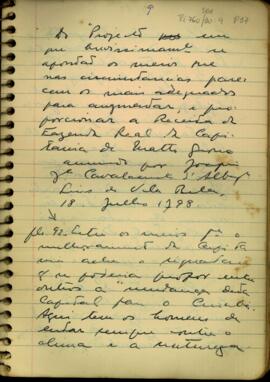 9
Pi 760
Do "Projecto em
que
apontão os meios que
nas circunstancias pare-
cem os mais adequados
para augmentar, e pro-
porcionar a Receita da
Fazenda Real da Capi-
tania de Matto Grosso
por Joaquim
Je Cavalcante d'Albuq
Lins da Vila
18 Julho 1798.
fl. 92. Entre os meios pa o
melhoramento da Capita
nia acha o signatario
q se poderia propor entre
outros a "mudança desta
Capital para o Cuiabá.
Aqui tem os homens
sempre contra o
clima e a natureza